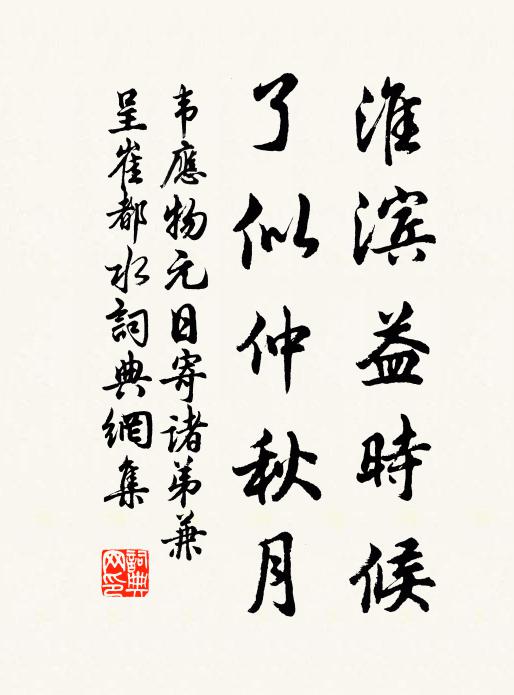 淮滨益時候
了似仲秋月
韦應物元日寄諸弟兼
呈崔都水詞典網集
詞典网印